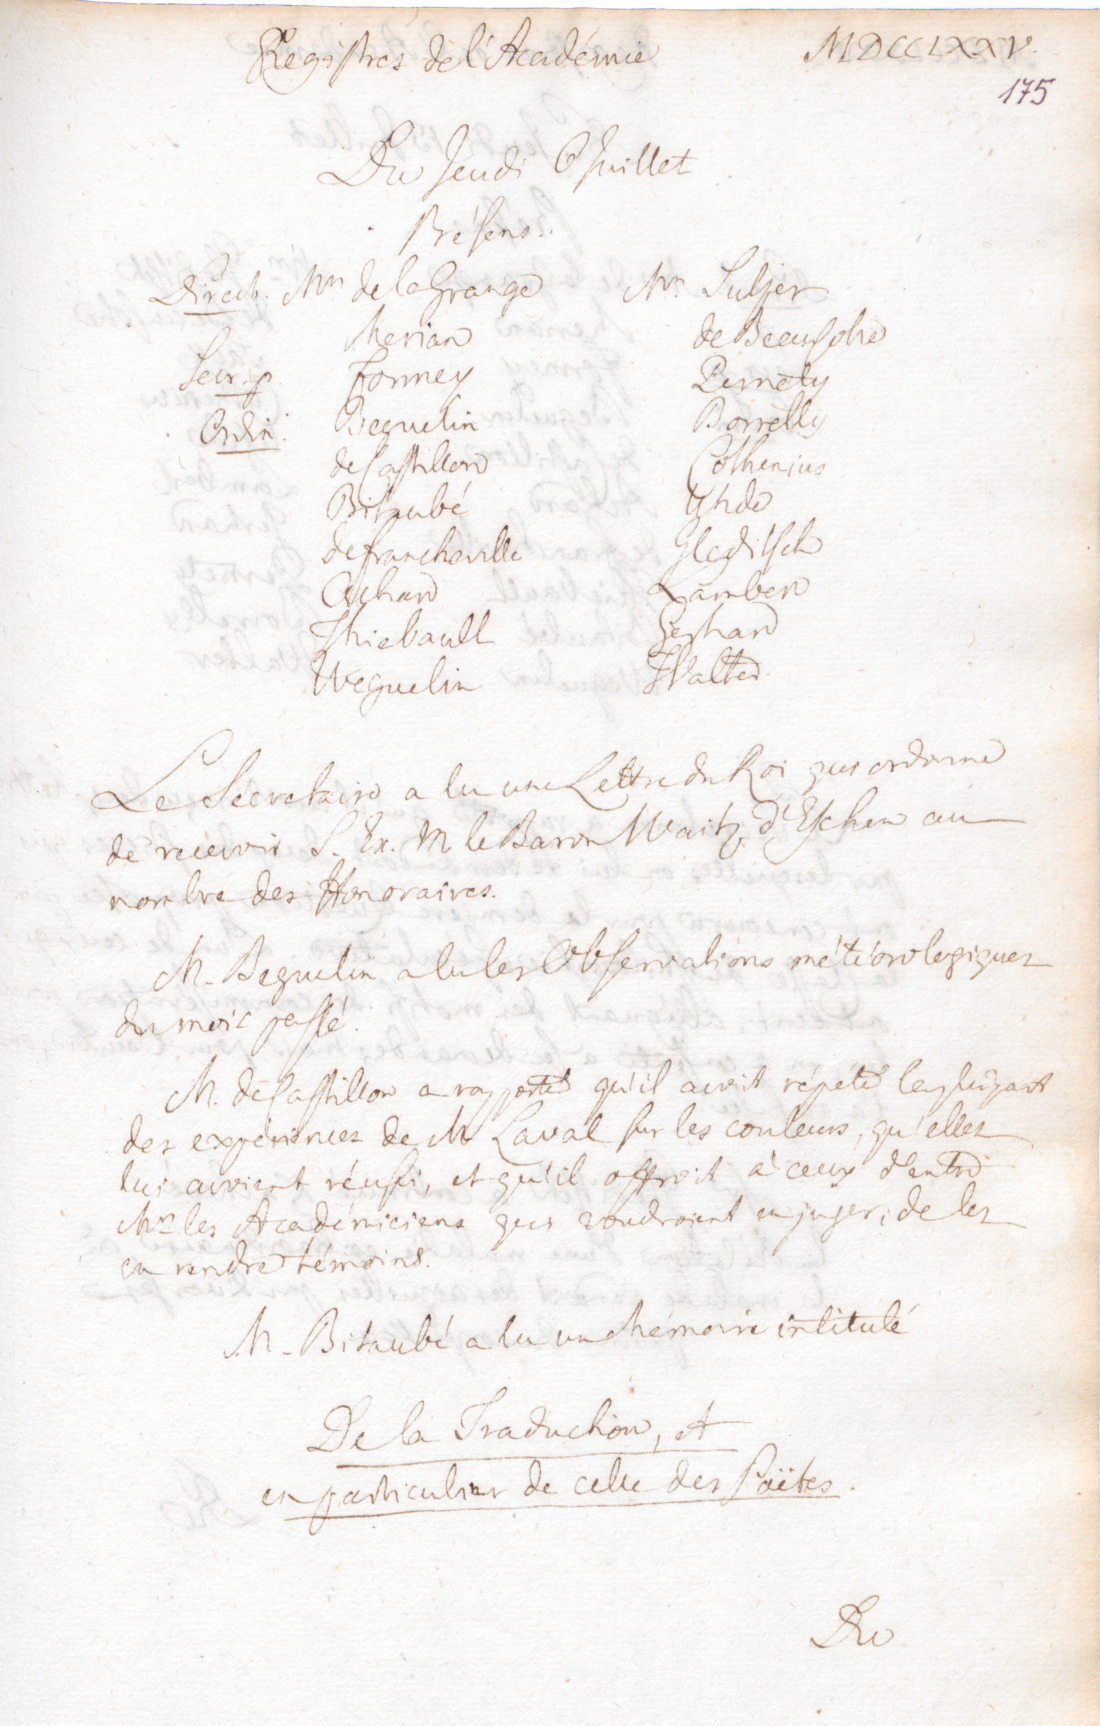 Registres de l'Académie MDCCLXXV.
175
Du Jeudi 6 Juillet
Présens.
Direct. Mrs de la Grange Mrs Sulzer
Merian de Beausobre
Secr. p. Formey Pernety
Ordin. Beguelin Borrelly
de Castillon Cothenius
Bitaubé
de Francheville Gleditsch
Achard Lambert
Thiebault Gerhard
Weguelin Walter
Le Secretaire a lu une Lettre du Roi qui ordonne
de recevoir S. Ex. M le Baron Waitz d'Eschen au
nombre des Honoraires.
M. Beguelin a lu les Observations météorologiques
du mois passé.
M. de Castillon a rapporté qu'il avoit répété la plupart
des expériences de M Laval sur les couleurs, qu'elles
lui avoient réussi, et qu'il offroit à ceux d'entre
Mrs les Académiciens qui voudroient en juger, de les
en rendre témoins.
M. Bitaubé a lu un Mémoire intitulé
De la Traduction, et
en particulier de celle des Poëtes.
Du